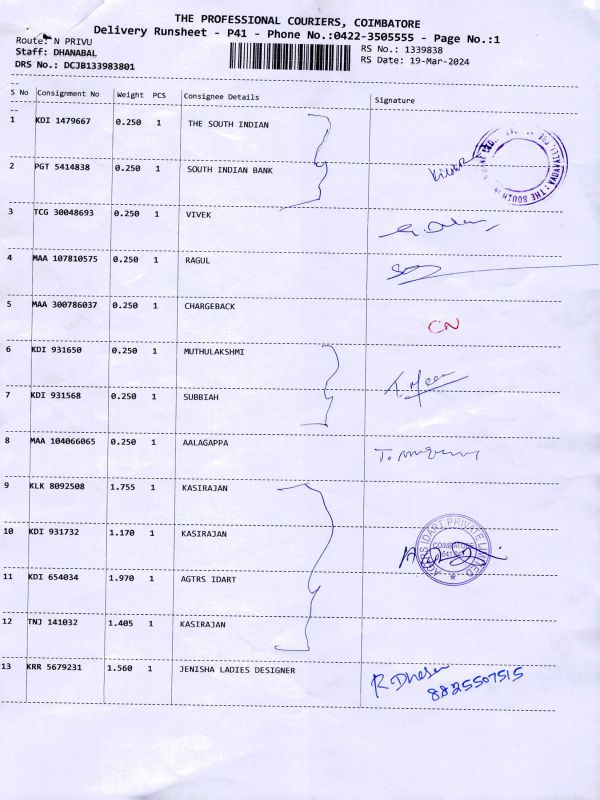 THE PROFESSIONAL COURIERS, COIMBATORE
Delivery Runsheet - P41 - Phone No.:0422-3505555 - Page No.:1
Route: N PRIVU
RS No.: 1339838
Staff: DHANABAL
RS Date: 19-Mar-2024
DRS No.: DCJB133983801
S No Consignment No Weight PCS Consignee Details Signature
1 KDI 1479667 0.250 1 THE SOUTH INDIAN
2 PGT 5414838 0.250 1 SOUTH INDIAN BANK
3 TCG 30048693 0.250 1 VIVEK
4 MAA 107810575 0.250 1 RAGUL
5 MAA 300786037 0.250 1 CHARGEBACK
CN
6 KDI 931650 0.250 1 MUTHULAKSHMI
7 KDI 931568 0.250 1 SUBBIAH
8 MAA 104066065 0.250 1 AALAGAPPA
9 KLK 8092508 1.755 1 KASIRAJAN
10 KDI 931732 1.170 1 KASIRAJAN
AGTRS IDART PRIVATE LIMITED
COIMBATORE
11 KDI 654034 1.970 1 AGTRS IDART
12 TNJ 141032 1.405 1 KASIRAJAN
13 KRR 5679231 1.560 1 JENISHA LADIES DESIGNER
8825507515